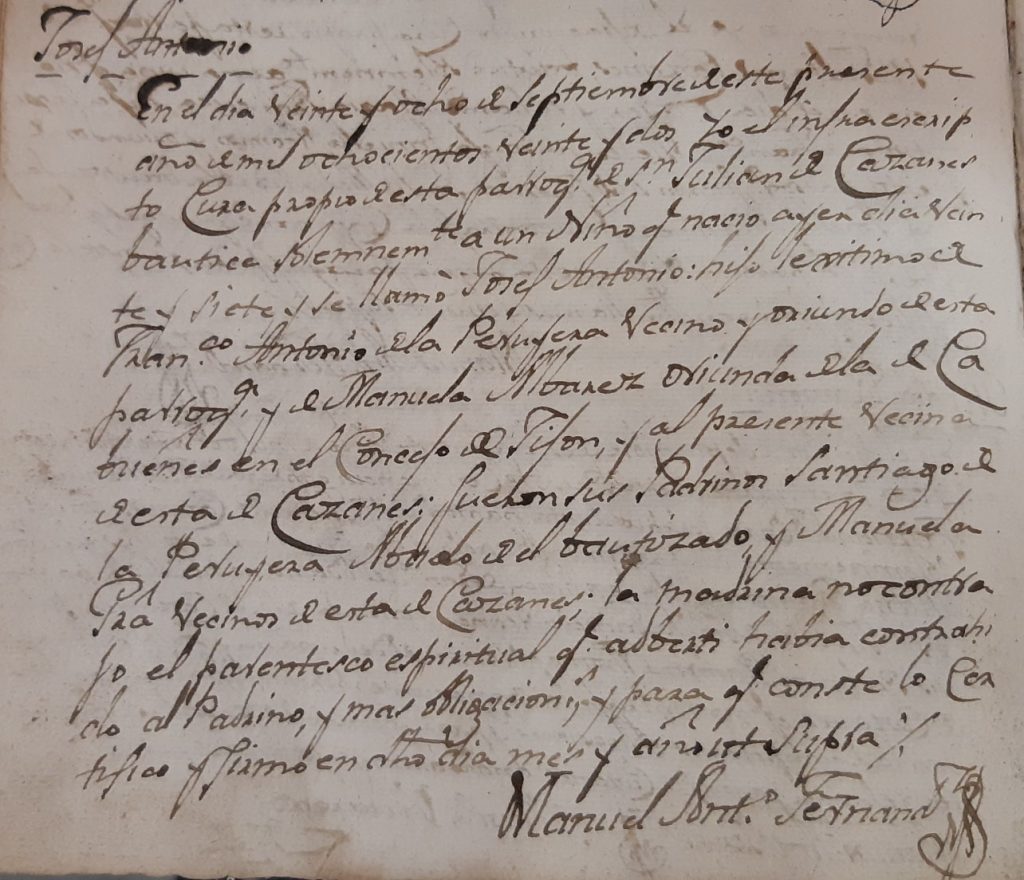 Josef Antonio
En el dia veinte y ocho de septiembre de este presente
año de mil ochocientos veinte y dos Yo el infra escrip
to Cura propio de esta parroq.ª de S.n Julian de Cazanes
bautice solemnem.te a un Niño q.e nacio ayer dia vein
te y siete y se llamó Josef Antonio: hijo lexitimo de
Fran.co Antonio de la Peruyera Vecino y oriundo de esta
parroq.ª y de Manuela Alvarez oriunda de la de Ca
buenes en el Concejo de Jijon, y al presente vecina
de esta de Cazanes; fueron sus Padrinos Santiago de
la Peruyera Abuelo de el bautizado, y Manuela
Vecinos de esta de Cazanes; la madrina no contra
jo el parentesco espiritual q.e adberti habia contrahi
do al Padrino, y mas obligacion.s y para q.e conste lo Cer
tifico y firmo en dho dia mes y año ut supra
Manuel Ant.º Fernand.z